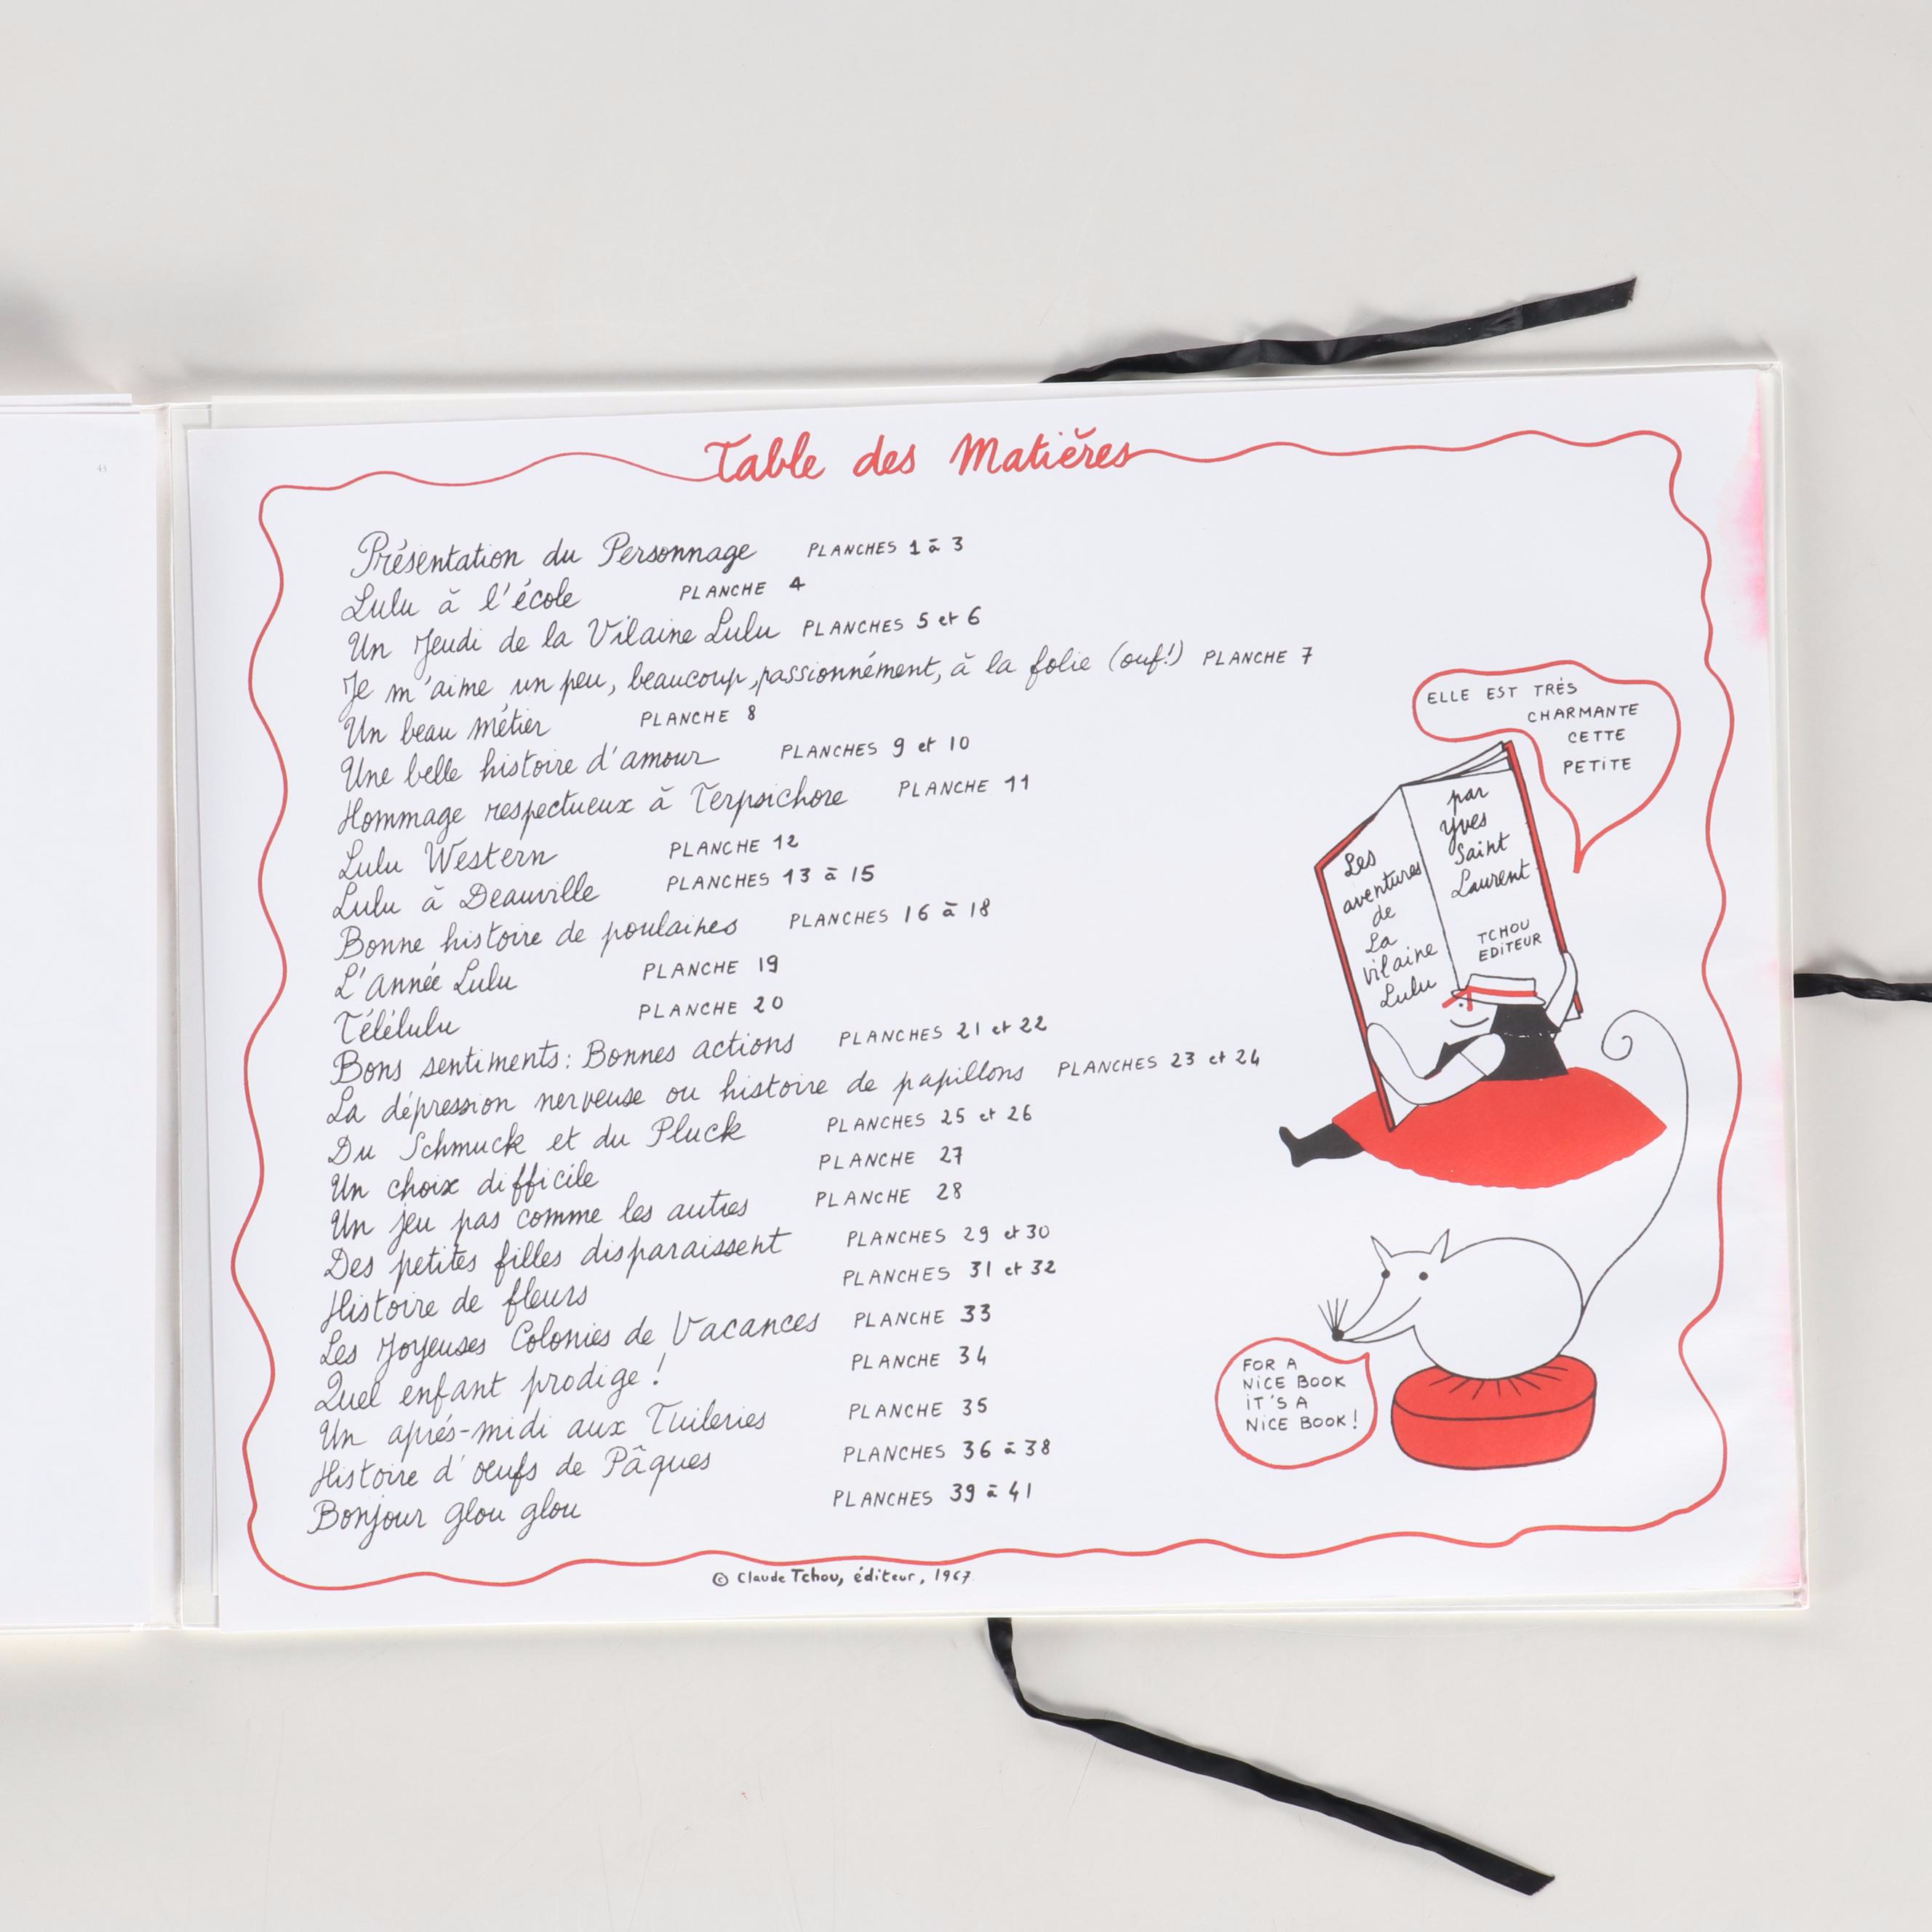 Table des Matières
Présentation du Personnage PLANCHES 1 à 3
Lulu à l'école PLANCHE 4
Un Jeudi de la Vilaine Lulu PLANCHES 5 et 6
Je m'aime un peu, beaucoup, passionnément, à la folie (ouf!) PLANCHE 7
Un beau métier PLANCHE 8
Une belle histoire d'amour PLANCHES 9 et 10
Hommage respectueux à Terpsichore PLANCHE 11
Lulu Western PLANCHE 12
Lulu à Deauville PLANCHES 13 à 15
Bonne histoire de poulaines PLANCHES 16 à 18
L'année Lulu PLANCHE 19
Télélulu PLANCHE 20
Bons sentiments: Bonnes actions PLANCHES 21 et 22
La dépression nerveuse ou histoire de papillons PLANCHES 23 et 24
Du Schmuck et du Pluck PLANCHES 25 et 26
Un choix difficile PLANCHE 27
Un jeu pas comme les autres PLANCHE 28
Des petites filles disparaissent PLANCHES 29 et 30
Histoire de fleurs PLANCHES 31 et 32
Les Joyeuses Colonies de Vacances PLANCHE 33
Quel enfant prodige! PLANCHE 34
Un après-midi aux Tuileries PLANCHE 35
Histoire d'œufs de Pâques PLANCHES 36 à 38
Bonjour glou glou PLANCHES 39 à 41
ELLE EST TRÉS
CHARMANTE
CETTE
PETITE
Les
aventures
de
La
vilaine
Lulu
par
Yves
Saint
Laurent
TCHOU
EDITEUR
FOR A
NICE BOOK
IT'S A
NICE BOOK!
© Claude Tchou, éditeur, 1967